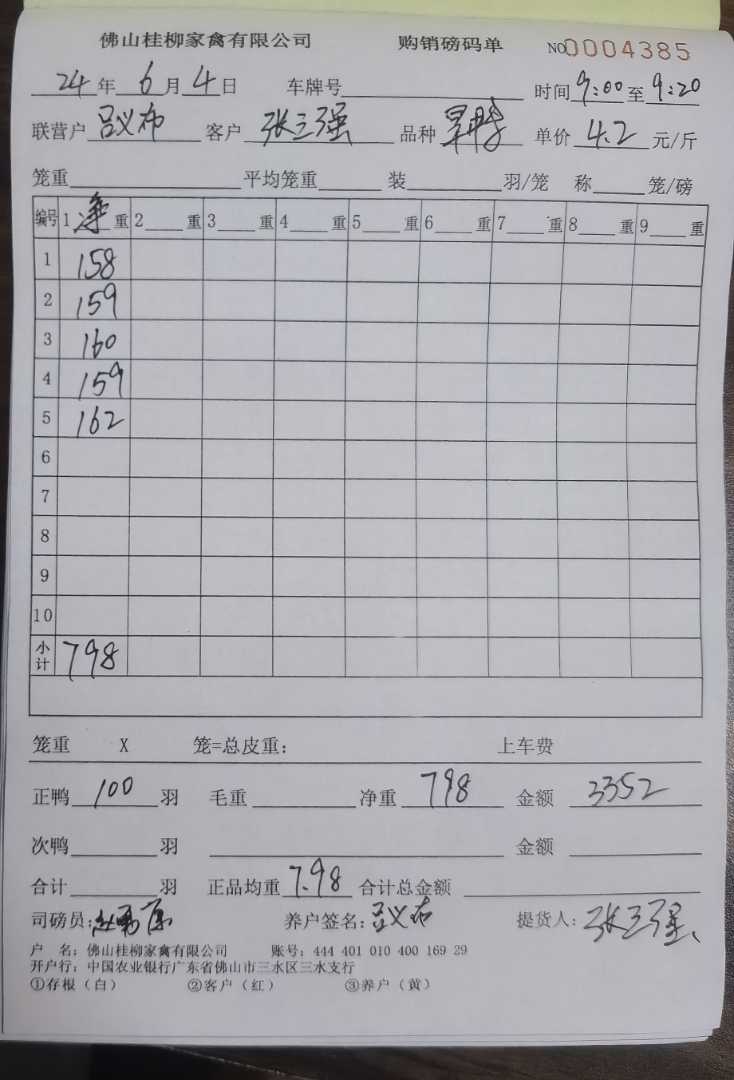 佛山桂柳家禽有限公司 购销磅码单 NO0004385
24年6月4日 车牌号 时间9:00至9:20
联营户吕义布 客户张三强 品种 单价4.2元/斤
笼重 平均笼重 装 羽/笼 称 笼/磅
编号 1净重 2 重 3 重 4 重 5 重 6 重 7 重 8 重 9 重
1 158
2 159
3 160
4 159
5 162
6
7
8
9
10
小计 798
笼重 X 笼=总皮重: 上车费
正鸭100羽 毛重 净重798 金额3352
次鸭 羽 金额
合计 羽 正品均重7.98 合计总金额
司磅员: 养户签名:吕义布 提货人:张三强
户 名: 佛山桂柳家禽有限公司 账号: 444 401 010 400 169 29
开户行: 中国农业银行广东省佛山市三水区三水支行
①存根(白) ②客户(红) ③养户(黄)